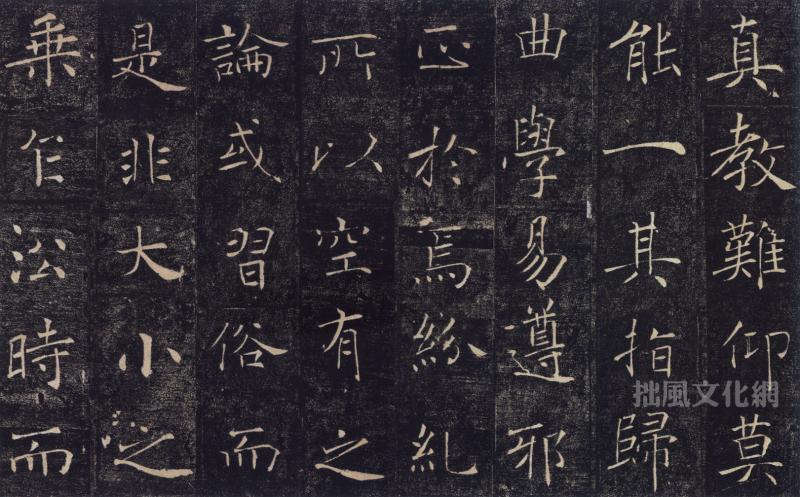 真教難仰莫
能一其指歸
曲學易遵邪
正於焉紛糺
所以空有之
論或習俗而
是非大小之
乘乍沿時而
拙風文化網